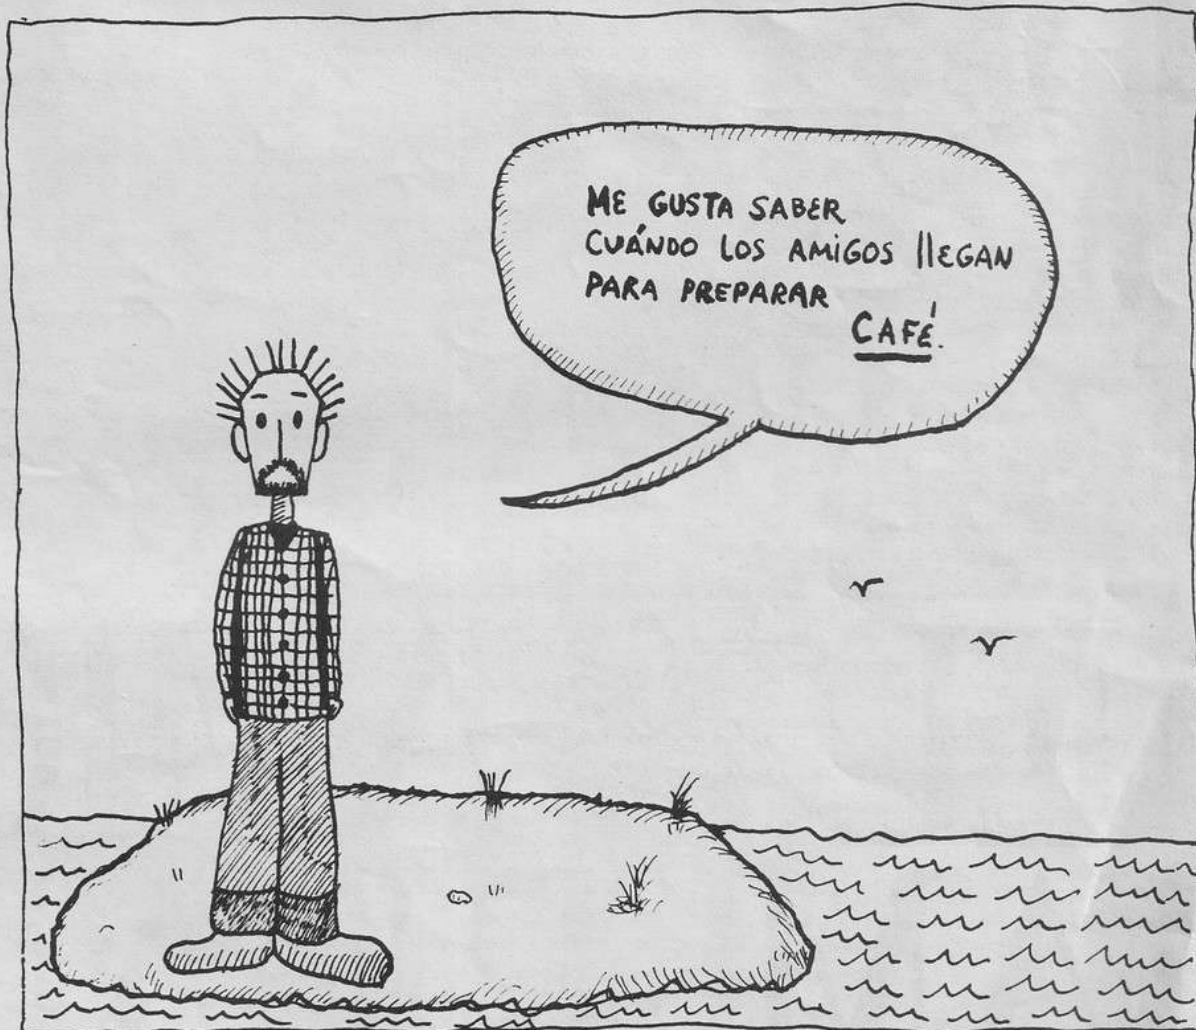 ME GUSTA SABER
CUÁNDO LOS AMIGOS llEGAN
PARA PREPARAR
CAFÉ.